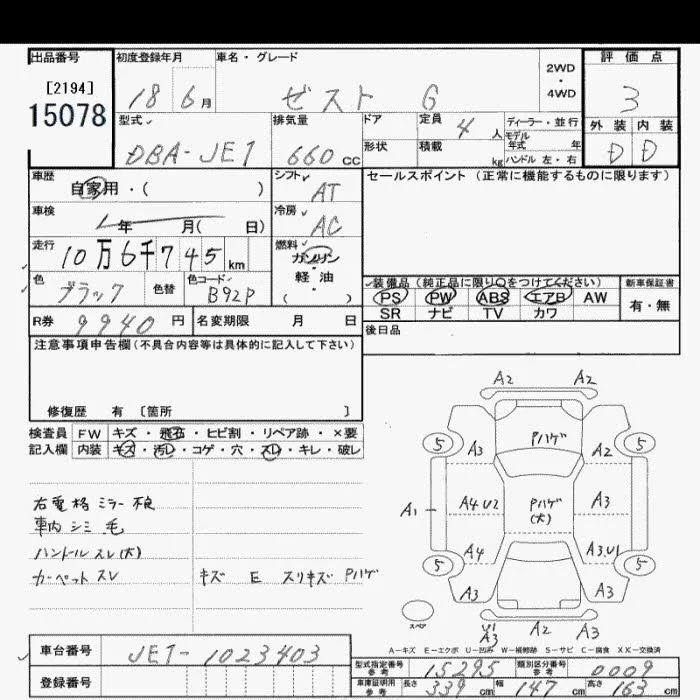 出品番号 初度登録年月 車名・グレード 評価点
[2194]
15078
18 6月 ゼスト G 2WD・4WD 3
型式 排気量 ドア 定員 4人 ディーラー・並行 外装 内装
モデル年式 年
DBA-JE1 660cc 形状 積載 kg ハンドル 左・右 D D
車歴 自家用・( ) シフト AT セールスポイント(正常に機能するものに限ります)
車検 年 月( 日) 冷房 AC
走行 10万6千745km 燃料 ガソリン・軽油( )
色 ブラック 色替 色コード B92P 装備品(純正品に限り○をつけてください) 新車保証書
PS PW ABS エアB AW 有・無
SR ナビ TV カワ
R券 9940円 名変期限 月 日 後日品
注意事項申告欄(不具合内容等は具体的に記入して下さい)
修復歴 有 〔箇所 〕
検査員 FW キズ・飛石・ヒビ割・リペア跡・×要
記入欄 内装 キズ・汚レ・コゲ・穴・スレ・キレ・破レ
右電格ミラー不良
車内シミ 毛
ハンドルスレ(大)
カーペットスレ キズ E スリキズ Pハゲ
A2 A2
5 A3 Pハゲ A2 5
A1 A4 U2 Pハゲ(大) A3
5 A4 A3.U1 5
A3 A3
スペア U1 A3 A2 A3
A-キズ E-エクボ U-凹み W-補修跡 S-サビ C-腐食 XX-交換済
車台番号 JE1-1023403
登録番号
型式指定番号 参考 15295 類別区分番号 参考 0009
車庫証明用 参考 長さ 339cm 幅 147cm 高さ 163cm